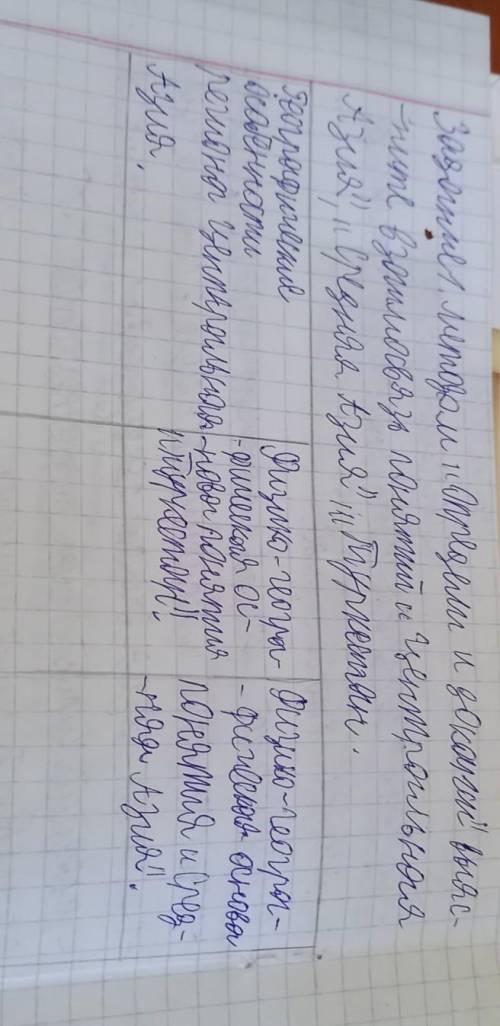 Задание 1. методом "Определи и докажи" выяс-
-ните взаимосвязь понятий "Центральная
Азия", "Средняя Азия", "Туркестан.
Географические
особенности
региона Центральная
Азия.
Физико-геогра-
-фическая ос-
-нова понятия
"Туркестан".
Физико-геогра-
-фическая основа
понятия "Сред-
-няя Азия".